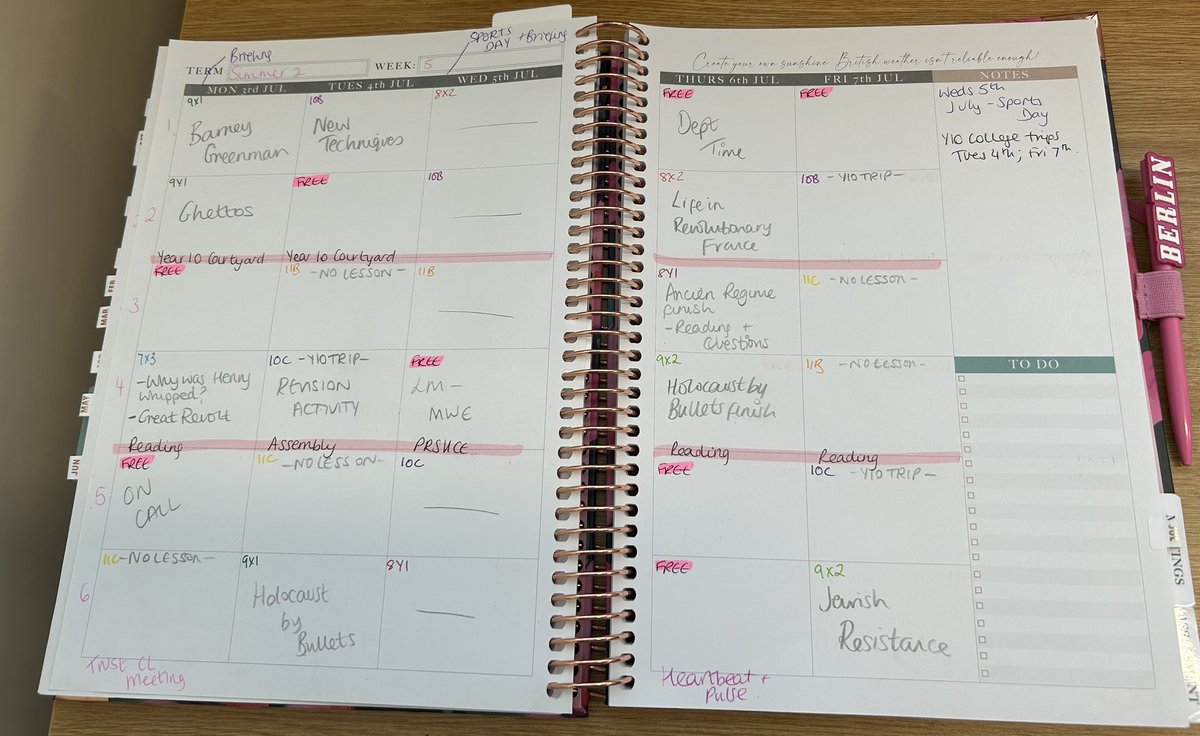 Briefing
SPORTS
DAY + Briefing
TERM Summer 2 WEEK: 5
MON 3RD JUL TUES 4TH JUL WED 5TH JUL
1
9X1
Barney
Greenman
10B
New
Techniques
8X2
2
9Y1
Ghettos
FREE
10B
Year 10 Courtyard Year 10 Courtyard
3
FREE
11B - NO LESSON -
11B
4
7X3
- Why was Henry
whipped?
- Great Revolt
10C - Y10 TRIP -
REVISION
ACTIVITY
FREE
LM -
MWE
Reading Assembly PRSHCE
5
FREE
ON
CALL
11C - NO LESSON -
10C
6
11C - NO LESSON -
9X1
Holocaust
by
Bullets
8Y1
Trust CL
Meeting
Create your own sunshine. British weather isn't reliable enough!
THURS 6TH JUL FRI 7TH JUL NOTES
FREE
Dept
Time
FREE
Weds 5th
July - Sports
Day
Y10 College trips
Tues 4th; Fri 7th.
8X2
Life in
Revolutionary
France
10B - Y10 TRIP -
8Y1
Ancien Regime
finish
- Reading +
Questions
11C - NO LESSON -
9X2
Holocaust by
Bullets finish
11B - NO LESSON -
TO DO
Reading Reading
FREE
10C - Y10 TRIP -
FREE
9X2
Jewish
Resistance
Heartbeat +
Pulse
BERLIN
FEB
MAR
MAY
JUN
JUL